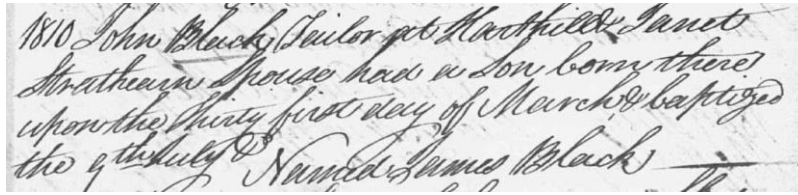 1810 John Black Tailor at Harthill & Janet
Strathearn Spouse had a Son born there
upon the Thirty first day of March & baptized
the 9th July Do Named James Black